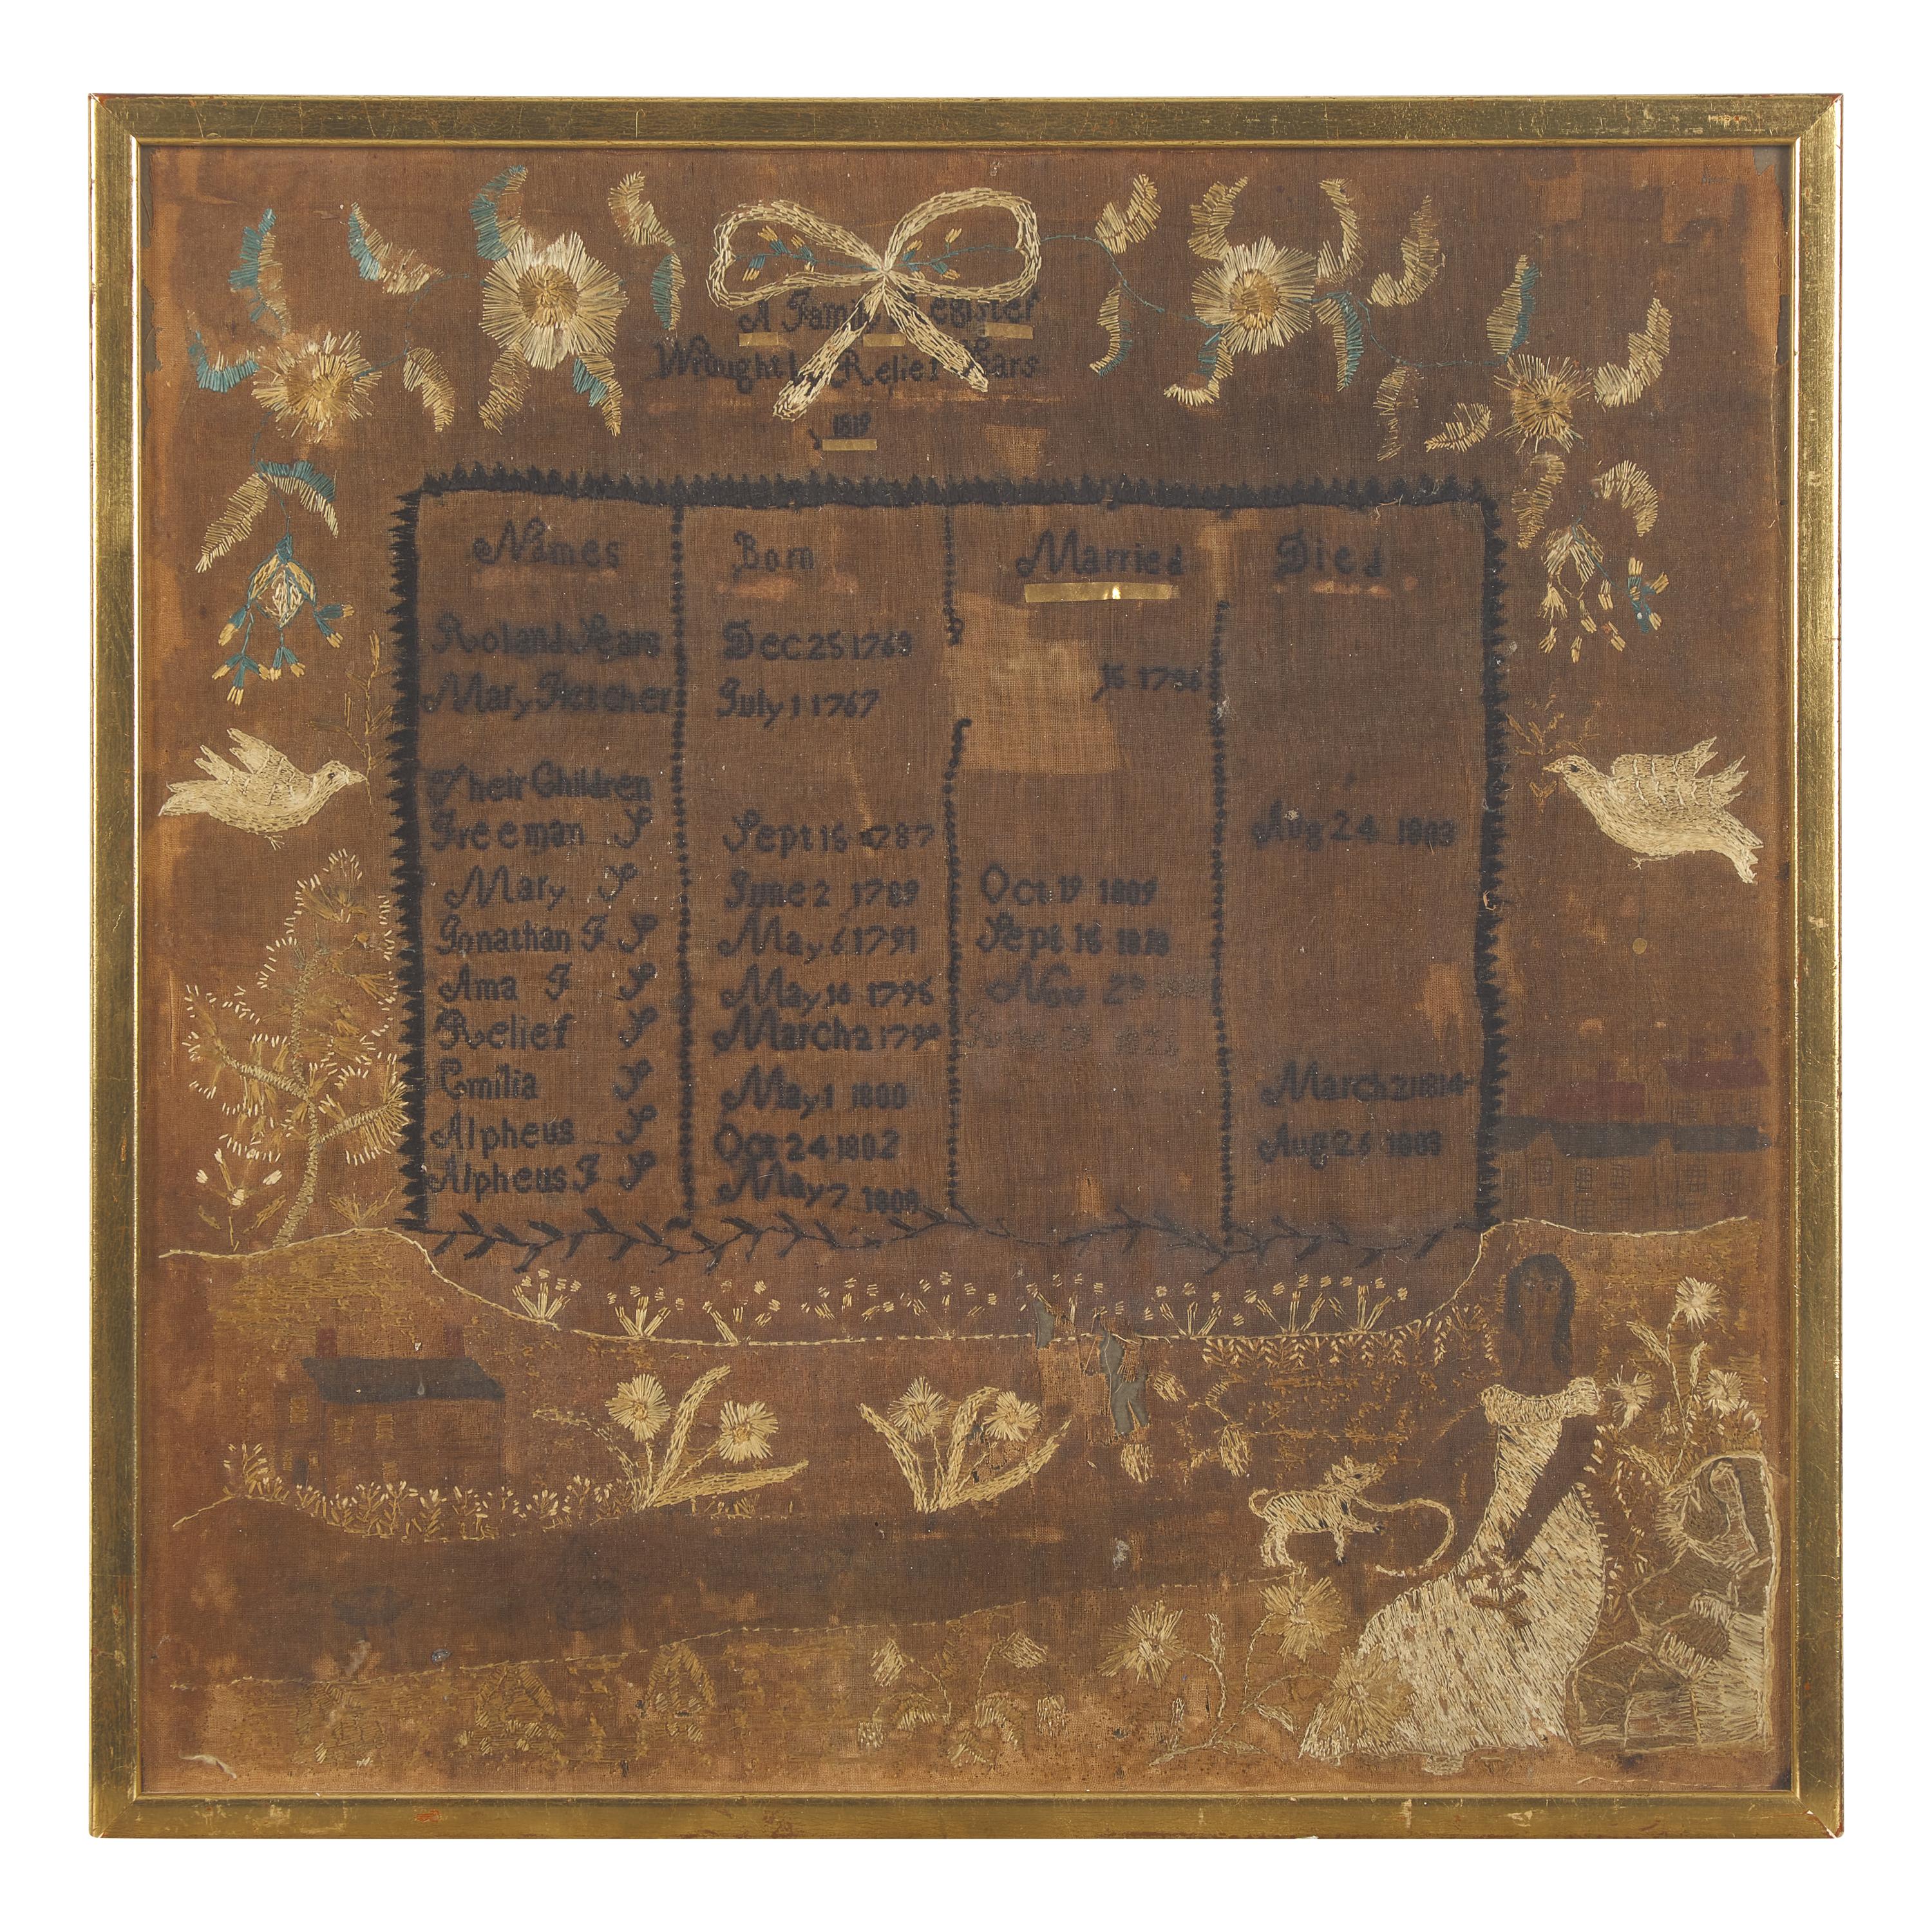 A Family Register
Wrought by Relief Sears
1819
Names Born Married Died
Roland Sears Dec 25 1763
Mary Fletcher July 1 1767 16 1786
Their Children
Freeman S Sept 16 1787 Aug 24 1803
Mary S June 2 1789 Oct 19 1809
Jonathan F S May 6 1791 Sept 16 1818
Ama F S May 16 1796 Nov 29
Relief S March 2 1798 29 1825
Emilia S May 1 1800 March 21 1814
Alpheus S Oct 24 1802 Aug 26 1803
Alpheus F S May 7 1808